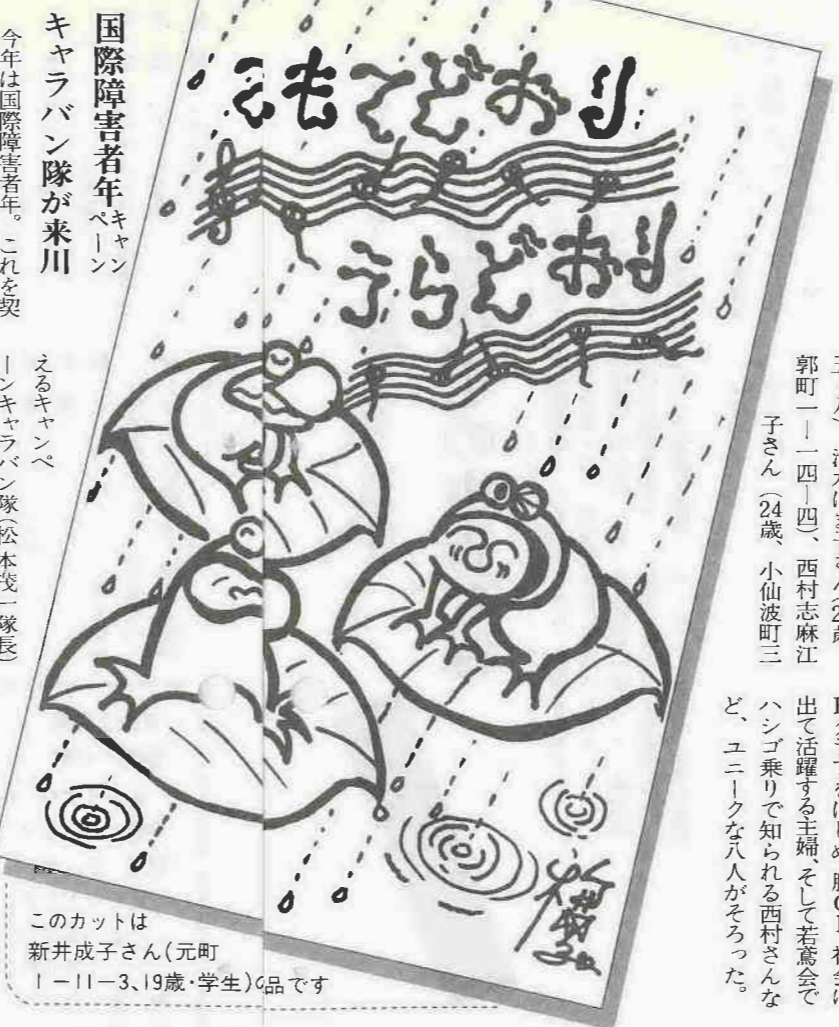 おもてどおり
うらどおり
郭町一―一四―四)、西村志麻江
子さん(24歳、小仙波町三
出て活躍する主婦、そして若鳶会で
ハシゴ乗りで知られる西村さんな
ど、ユニークな八人がそろった。
国際障害者年キャンペーン
キャラバン隊が来川
今年は国際障害者年。これを契
えるキャンペ
ーンキャラバン隊(松本茂一隊長)
このカットは
新井成子さん(元町
1-11-3、19歳・学生)の品です